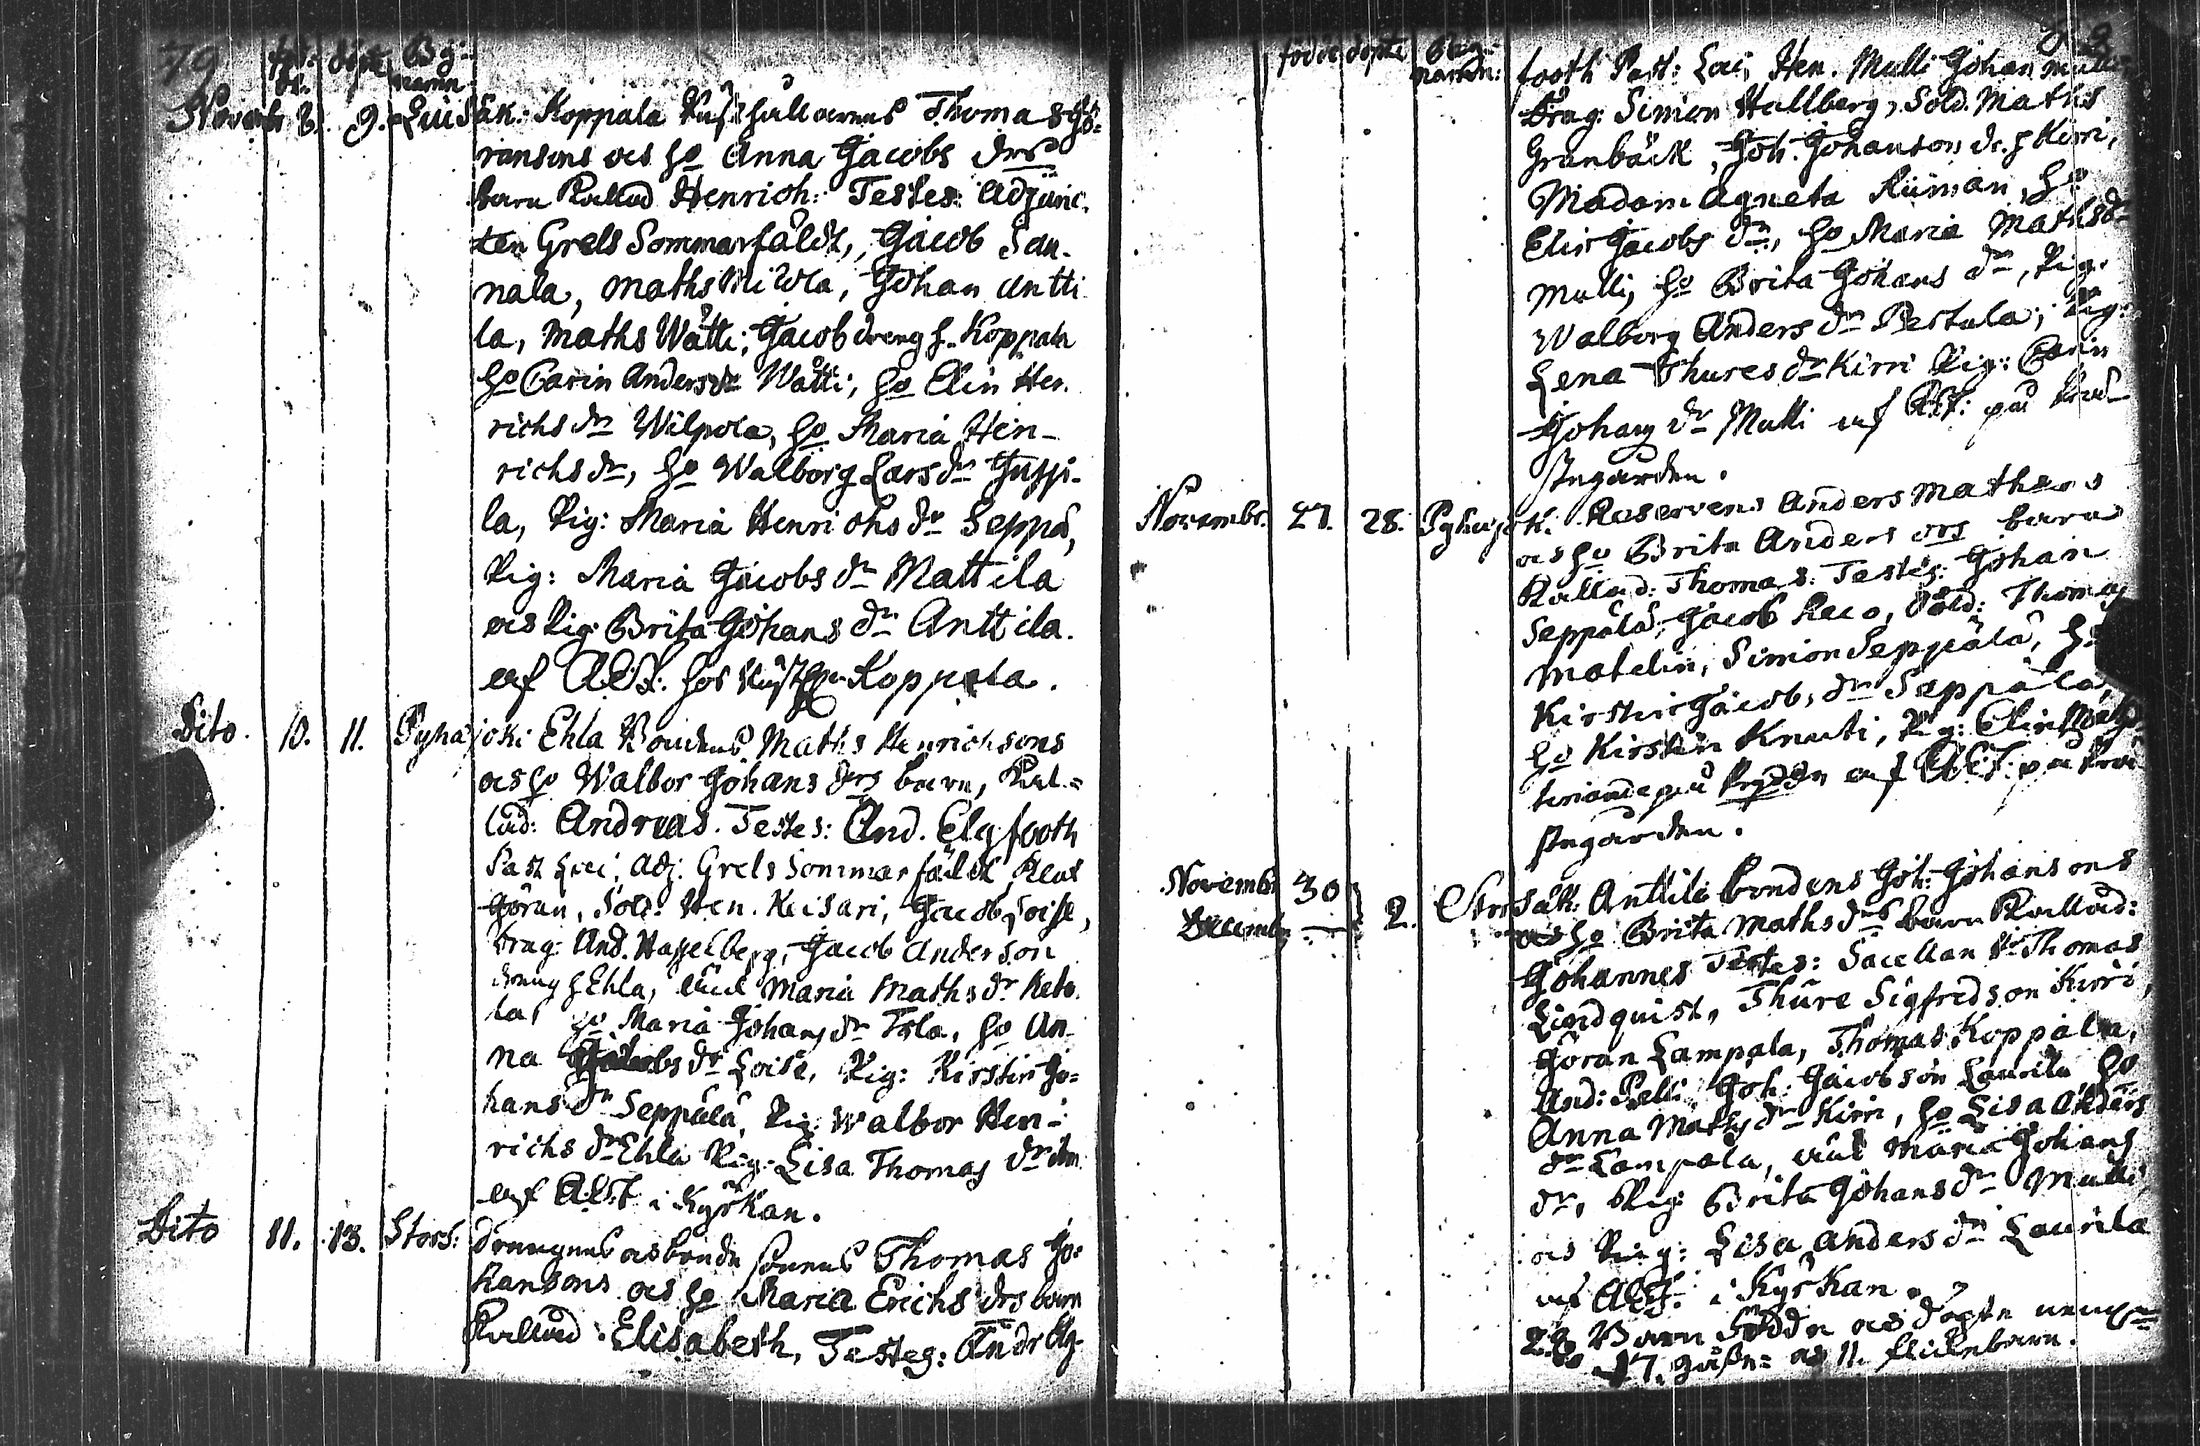 79
föd: döpt. By-
namn
Novemb 8. 9. Luisäk: Koppala Rusthållarens Thomas Gö-
ransons och ho Anna Jacobs drs
barn Kallad Henrich: Testes: Adjunc-
ten Grels Sommarfäldt, Jacob San-
nala, Maths Mickola, Johan Antti-
la, Maths Wätti; Jacob dreng h. Koppala
ho Carin Anders dr Wätti; ho Elin Hen-
richs dr Wilpola, ho Maria Hen-
richs dr, ho Walborg Lars dr Juppi-
la, Pig: Maria Henrichs dr Seppä,
Pig: Maria Jacobs dr Mattila
och Pig: Brita Johans dr Anttila.
af hos Koppala.
Dito. 10. 11. Pyhäjoki Ehla Bondens Maths Henrichsons
och ho Walbor Johans drs barn, Kal-
lad: Andreas. Testes: And. Elgfooth
Past Loci, Adj: Grels Sommarfäldt,
Göran, Sold: Hen. Keisari, Jacob Loise,
Drag: And. Hasselberg, Jacob Anderson
dreng h Ehla, Maria Maths dr Keto-
la, ho Maria Johans dr Isla, ho An-
na Jacobs dr Loise, Pig: Kirstin Jo-
hans dr Seppälä, Pig: Walbor Hen-
richs dr Ehla Pig: Lisa Thomas dr
af i Kyrkan.
Dito 11. 13. Stors: Drengens och bonde sonens Thomas Jo-
hansons och ho Maria Erichs drs barn
Kallad: Elisabeth, Testes: Andr Elg-
födde döpte By-
namn:
footh Past: Loci, Hen. Mulli Johan Mulli
Drag: Simon Hallberg, Sold. Maths
Granbäck, Joh. Johanson dr. h Kirri,
Madam Agneta Riiman, ho
Elin Jacobs dr, ho Maria Maths dr
Mulli, ho Brita Johans dr, Pig.
Walborg Anders dr Pestula, Pig:
Lena Thures dr Kirri Pig: Carin
Johans dr Mulli af på Prä-
stegården.
Novembr. 27. 28. Pyhäjoki. Reservens Anders Mathsons
och ho Brita Anders drs barn
Kallad: Thomas. Testes: Johan
Seppälä, Jacob Reco, Sold: Thomas
Matelin, Simon Seppälä, ho
Kirstin Jacobs dr Seppälä,
ho Kirstin Knuti, Pig: Elin
på af på Prä-
stegården.
Novembr 30
Decembr 2. Storsäk: Anttila Bondens Joh: Johansons
och ho Brita Maths drs barn Kallad:
Johannes Testes: Sacellan Thomas
Lindquist, Thure Sigfredson Kirri,
Göran Lampala, Thomas Koppala,
And: Pelli Joh: Jacobson Laurila ho
Anna Maths dr Kirri, ho Lisa Anders
dr Lampala, Maria Johans
dr, Pig: Brita Johans dr Mulli,
och Pig: Lisa Anders dr Laurila
af i Kyrkan.
28 Barn födde och döpte
17. gåsse- och 11. flickebarn.